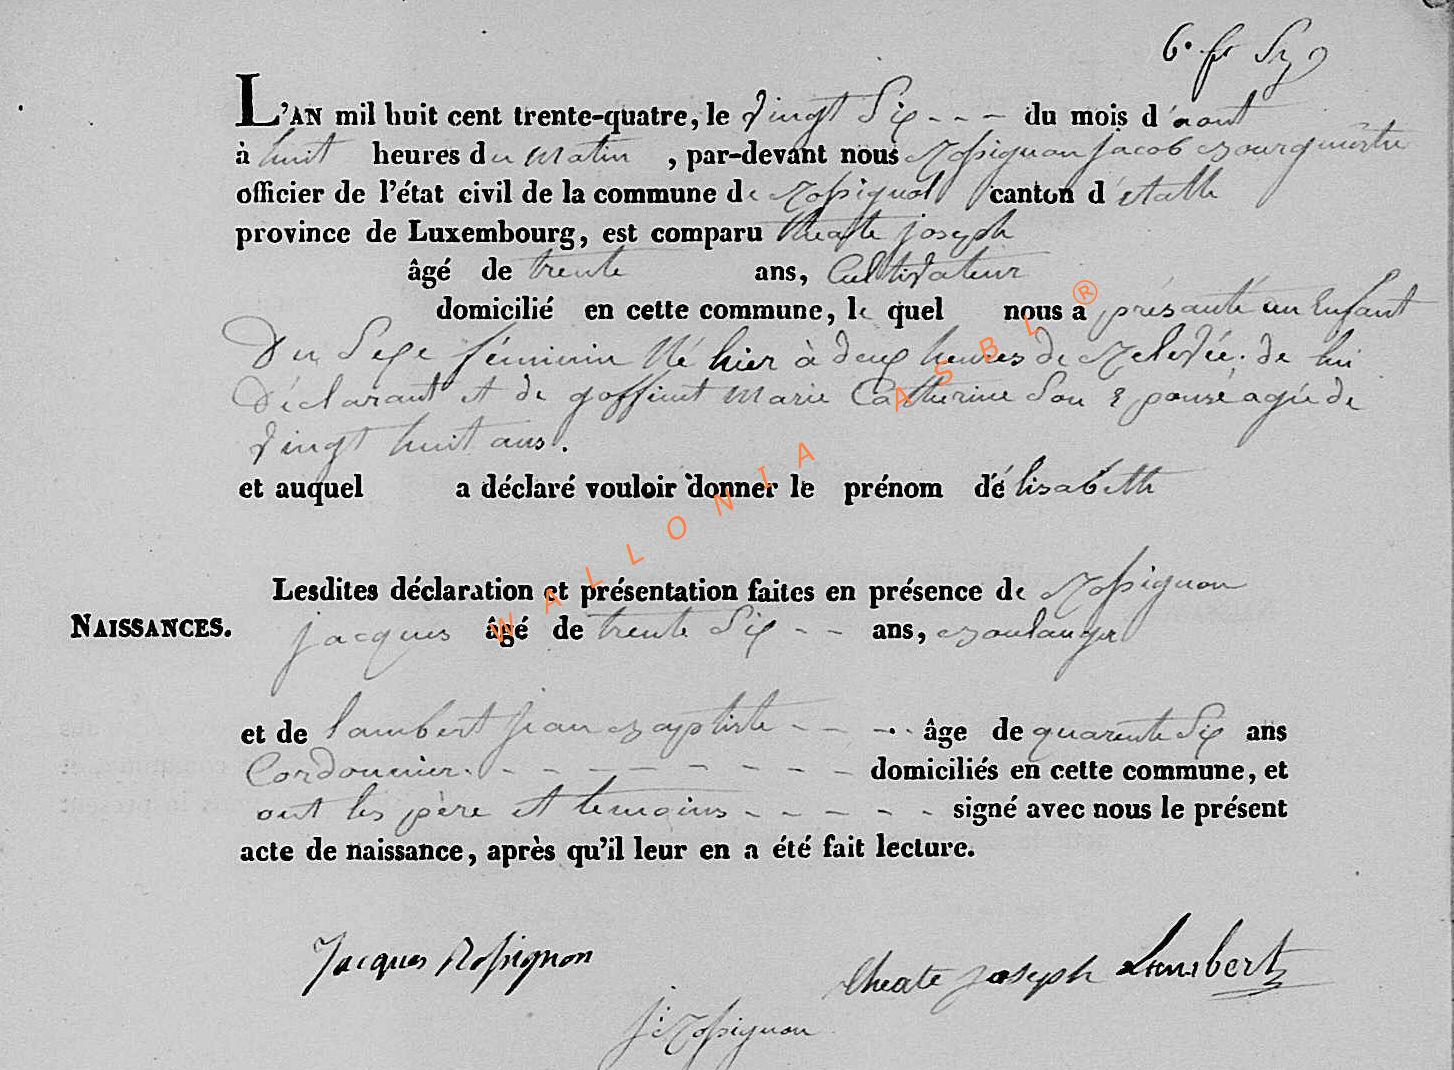 6.
L'AN mil huit cent trente-quatre, le vingt Six - - - du mois d'aout
à huit heures du matin, par-devant nous Rossignon jacob Bourguestre
officier de l'état civil de la commune de Rossignol canton d'étalle
province de Luxembourg, est comparu theate joseph
âgé de trente ans, Cultivateur
domicilié en cette commune, le quel nous a présanté un Enfant
Du Sexe féminin Né hier à deux heures de Relevée. de lui
Déclarant et de goffinet Marie Catherine Son Epouse agée de
vingt huit ans.
et auquel a déclaré vouloir donner le prénom d'élisabeth
Lesdites déclaration et présentation faites en présence de Rossignon
NAISSANCES. jacques âgé de trente Six - - ans, Boulanger
et de lambert jean Baptiste - - - âge de quarente Six ans
Cordonnier. - - - - - - - - - domiciliés en cette commune, et
ont les père et temoins - - - - - signé avec nous le présent
acte de naissance, après qu'il leur en a été fait lecture.
Jacques Rossignon theate joseph Lambert
j: Rossignon
WALLONIA ASBL ®